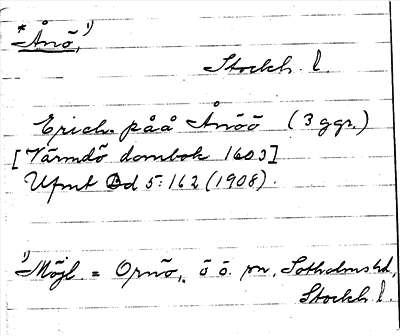 *Ånö, 1)
Stockh. l.
Erich påå Ånöö (3 ggr.)
[Värmdö dombok 1603]
Upmt Bd 5:162 (1908).
1) Möjl = Ornö, ö ö. sn, Sotholms hd,
Stockh l.